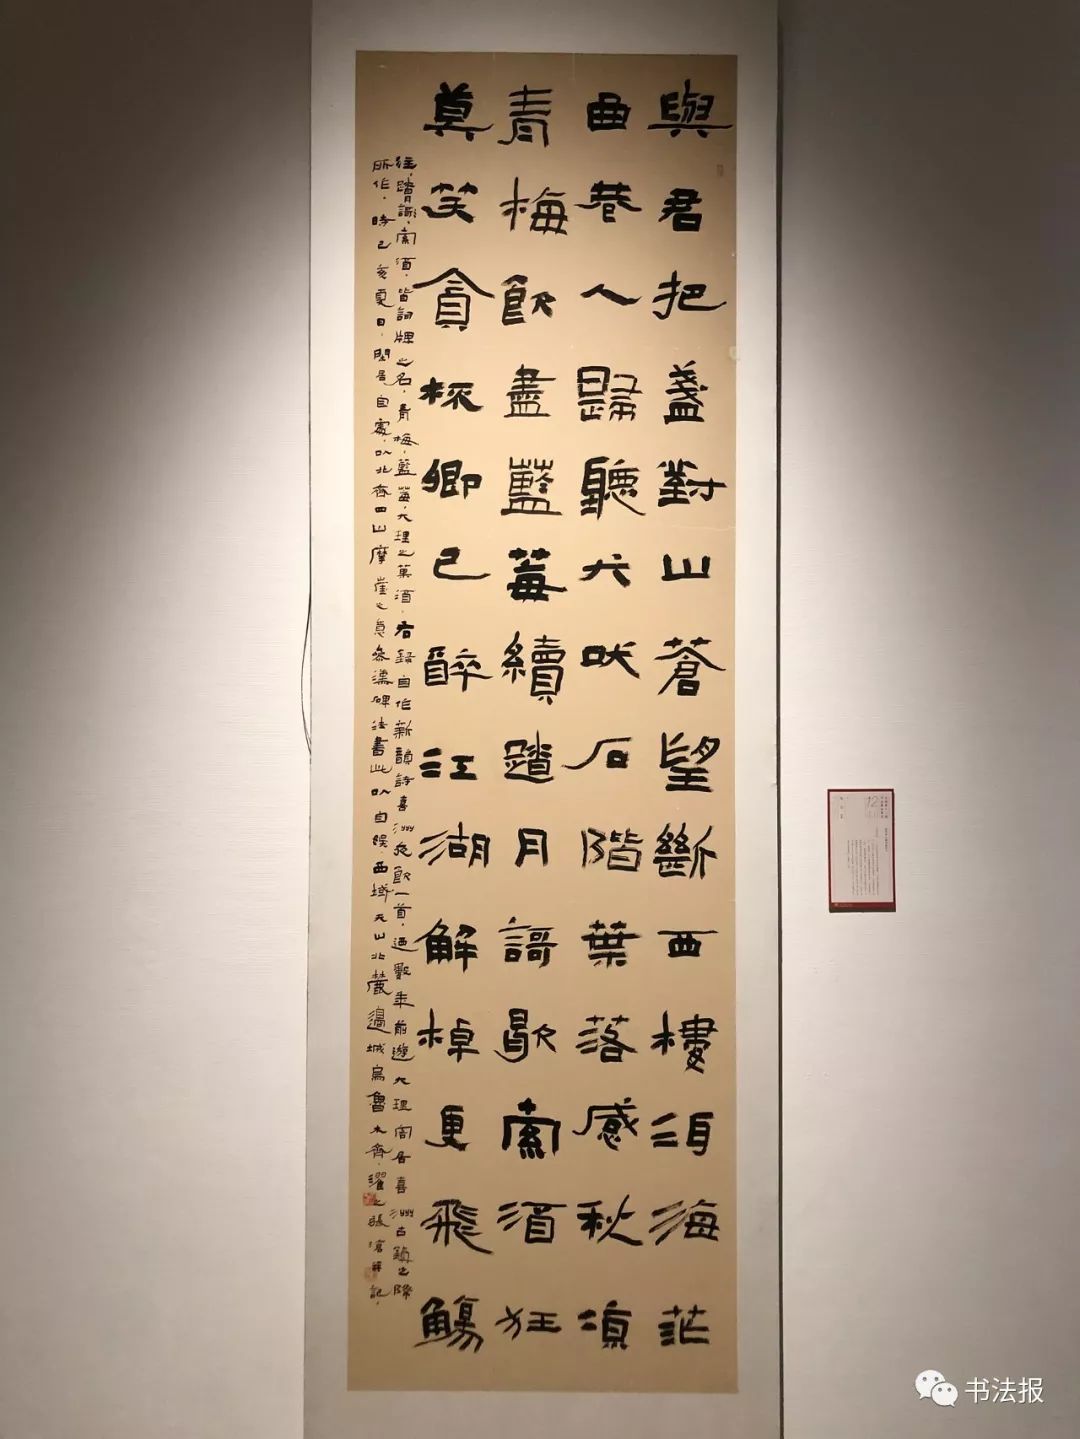 與君把盞對山蒼望斷西樓洱海茫
曲巷人歸聽犬吠石階葉落感秋凉
青梅飲盡藍莓續踏月謌歇索酒狂
莫笑貪杯卿已醉江湖解棹更飛觴
踏青謠索酒皆詞牌之名青梅藍莓大理之菓酒右錄自作新韻詩喜洲夜飲一首迺數年前遊大理宿居喜洲古鎮之際
所作時己亥夏日閒居自家以北齊四山摩崖之意參漢碑法書此以自娛西域天山北麓邊城烏魯木齊
12
书法报